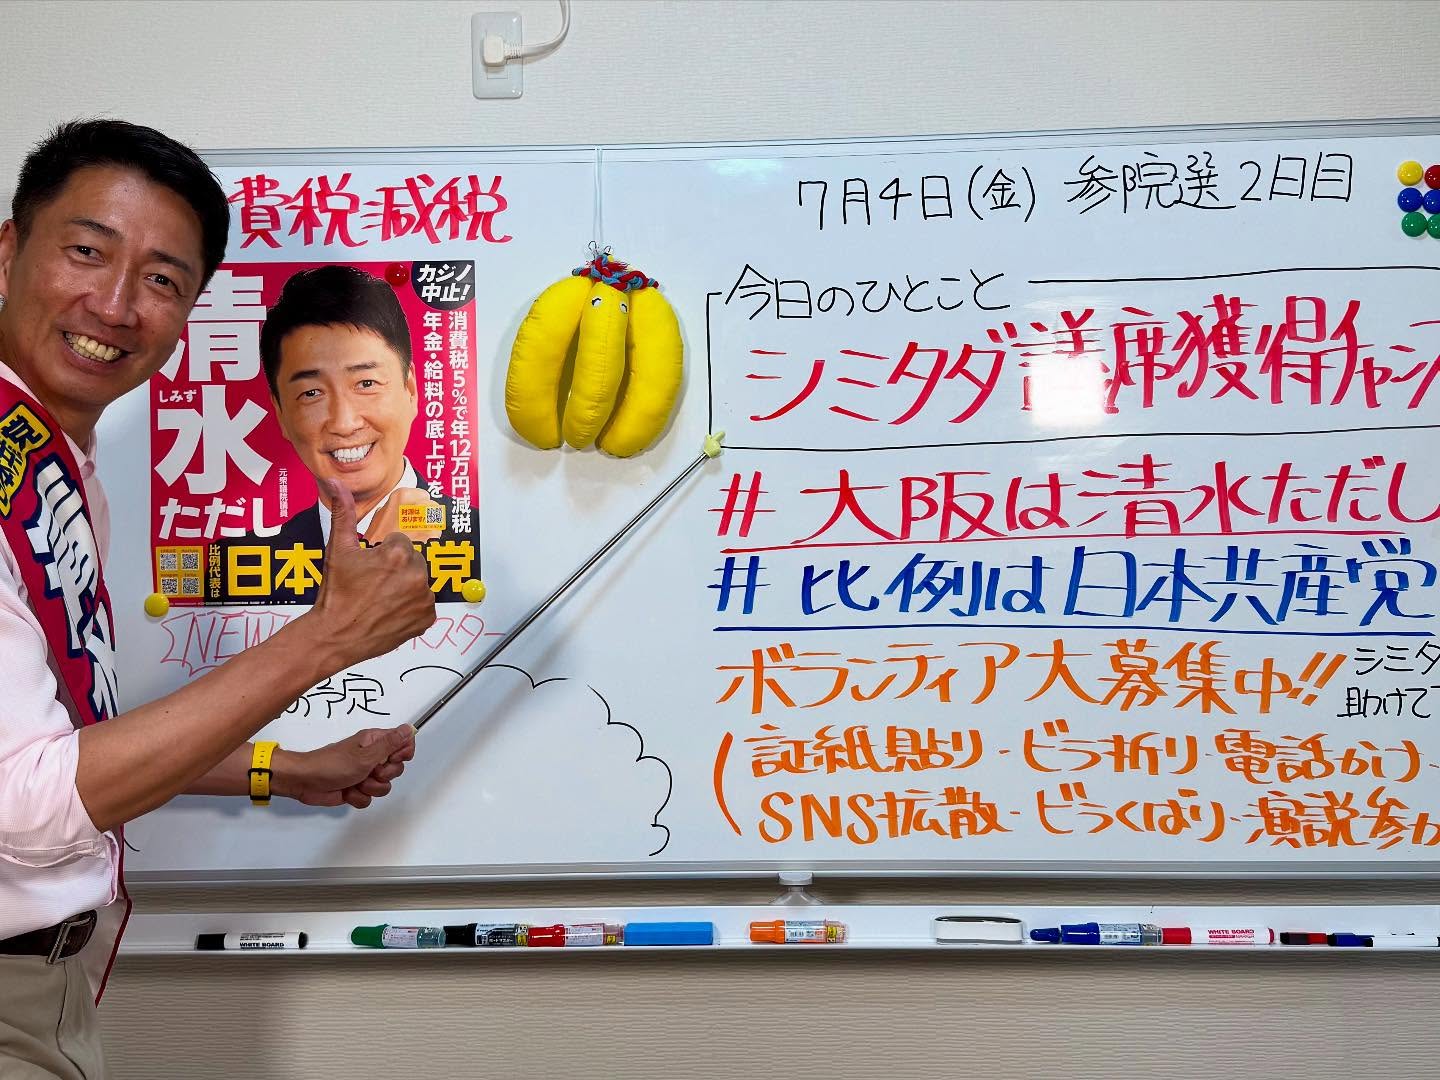 費税減税
7月4日(金) 参院選2日目
今日のひとこと
シミタダ議席獲得チャンス
#大阪は清水ただし
#比例は日本共産党
ボランティア大募集中!!
シミタ
助けて
(証紙貼り・ビラ折り・電話かけ・
SNS拡散・ビラくばり・演説参か
カジノ
中止!
消費税5%で年12万円減税
年金・給料の底上げを
清水
しみず
ただし
元衆議院議員
財源は
あります!
比例代表は
日本 党
NEW スター
の予定
WHITE BOARD
WHITE BOARD